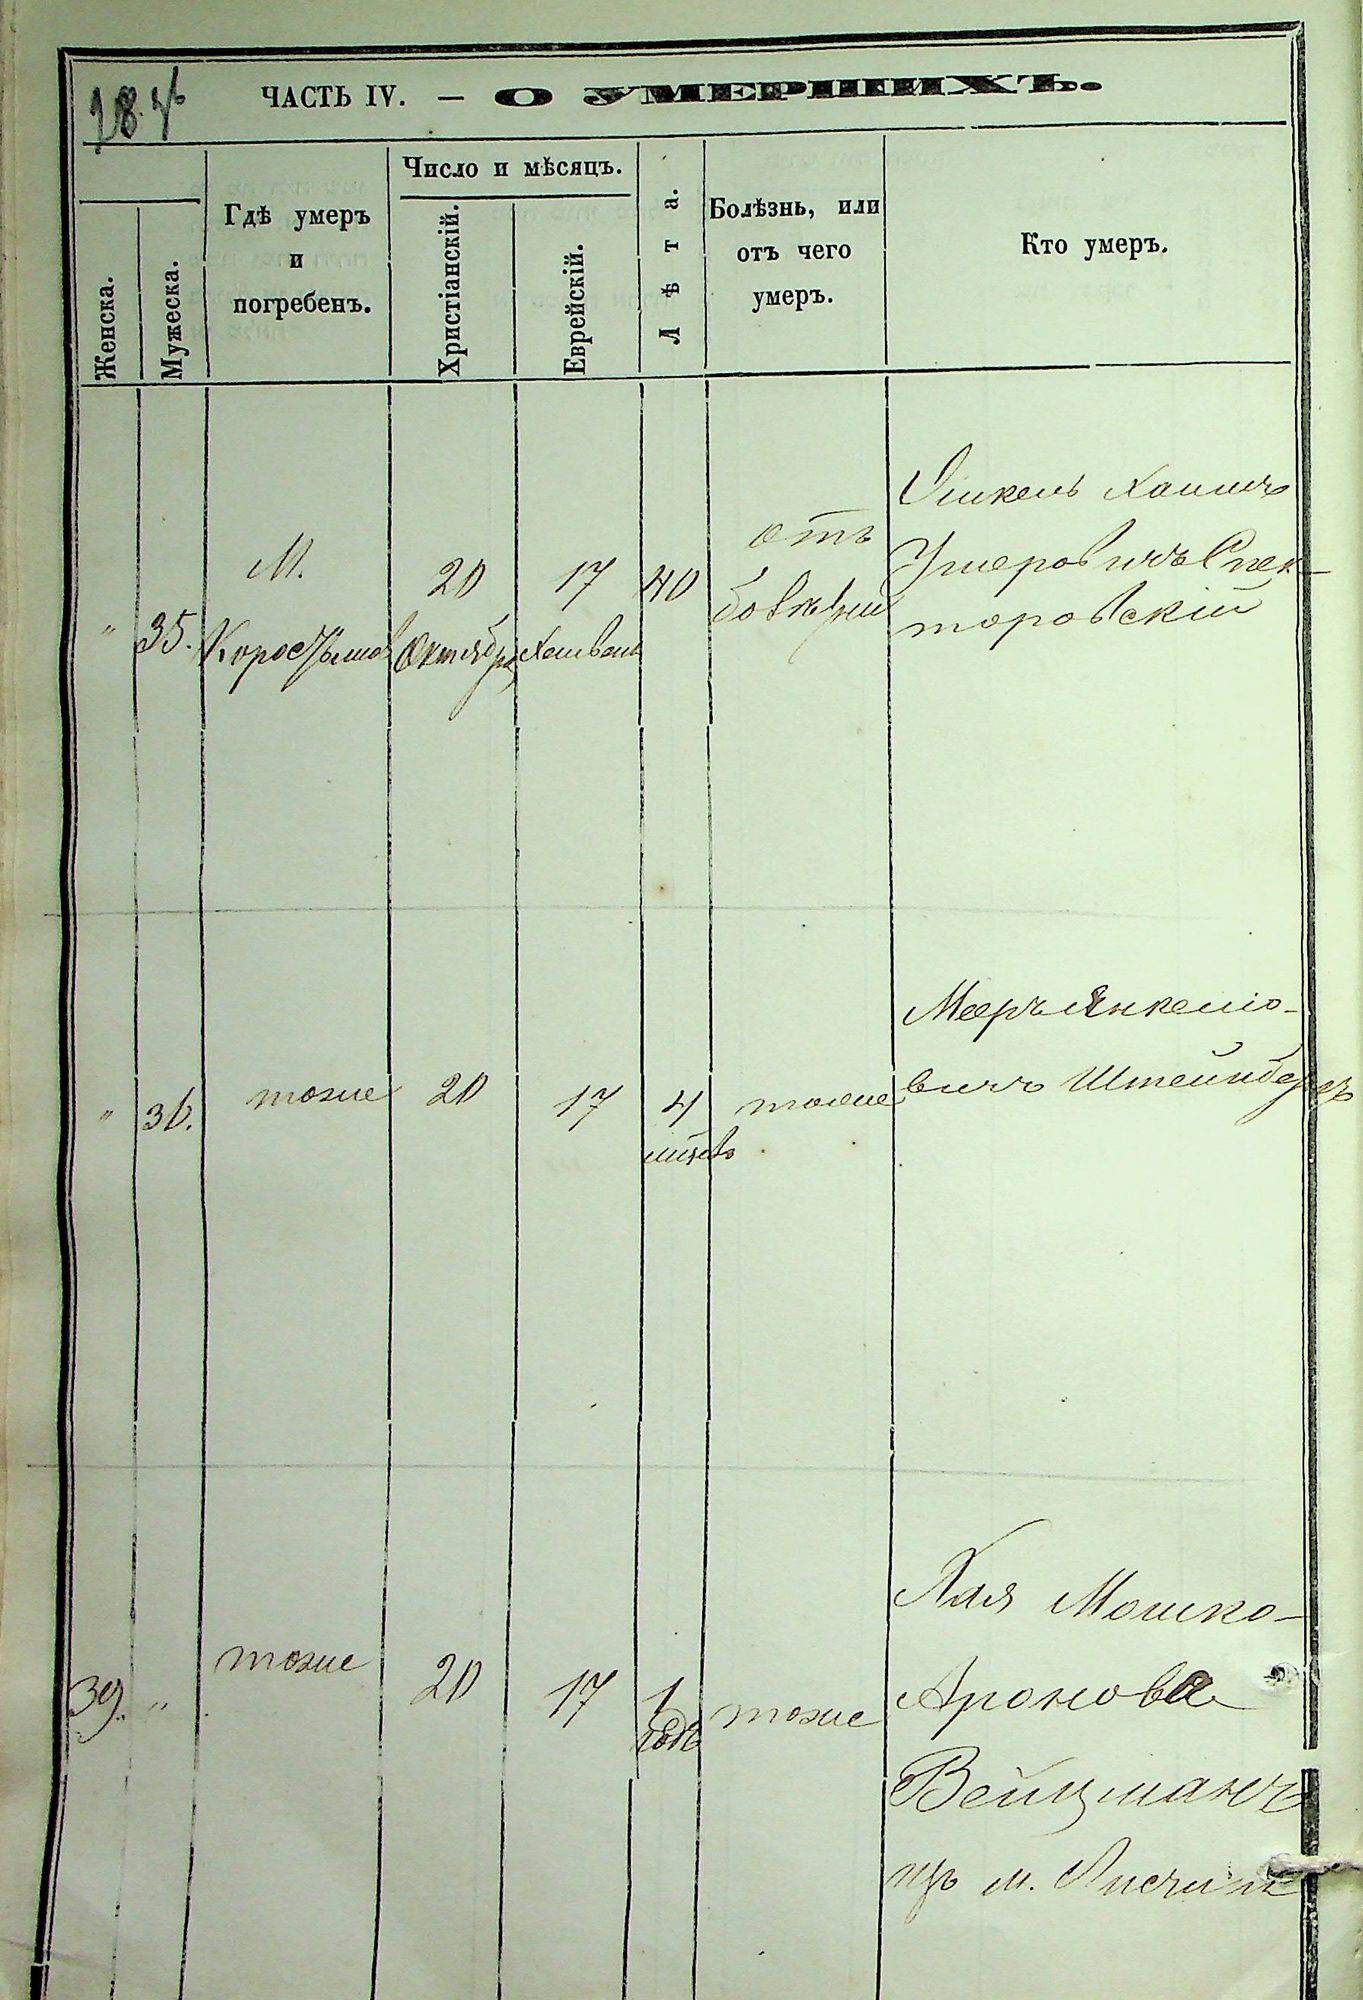 ЧАСТЬ IV. — О УМЕРШИХЪ.
Женска.
Мужеска.
Гдѣ умеръ
и
погребенъ.
Число и мѣсяцъ.
Христіанскій.
Еврейскій.
Лѣта.
Болѣзнь, или
отъ чего
умеръ.
Кто умеръ.
" 35.
М.
Коростышов
20
Октября
17
Хешвань
40
отъ
Хаимъ
Умеровичъ Спек-
торовскій
" 36.
тоже
20
17
4
мѣсяцовъ
тоже
Мееръ Янкелю-
вичъ Штейнбергъ
39. "
тоже
20
17
1
годъ
тоже
Хая Мошко-
Аронова
Вейцманъ
изъ м.